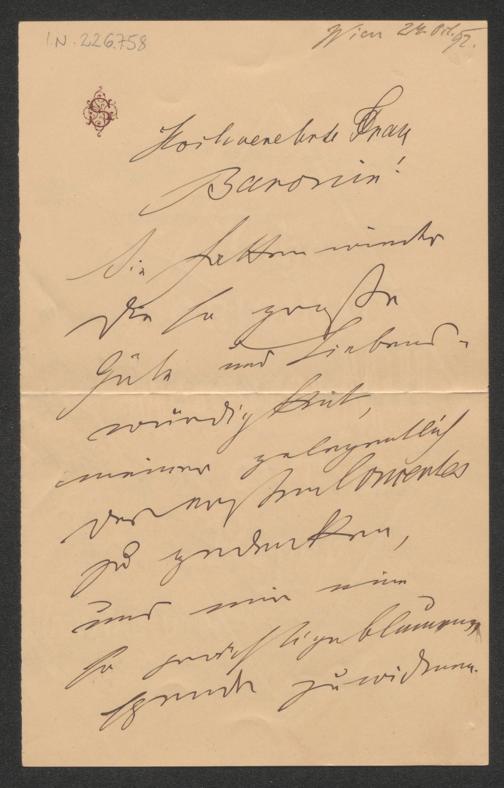 I.N. 226.758
Wien 24. Oct. 97.
Hochverehrte Frau
Baronin!
Sie hatten wieder
die so große
Güte und Liebens-
würdigkeit,
meiner gelegentlich
des ersten Concertes
zu gedenken,
und mir eine
so prächtige Blumen-
spende zu widmen.